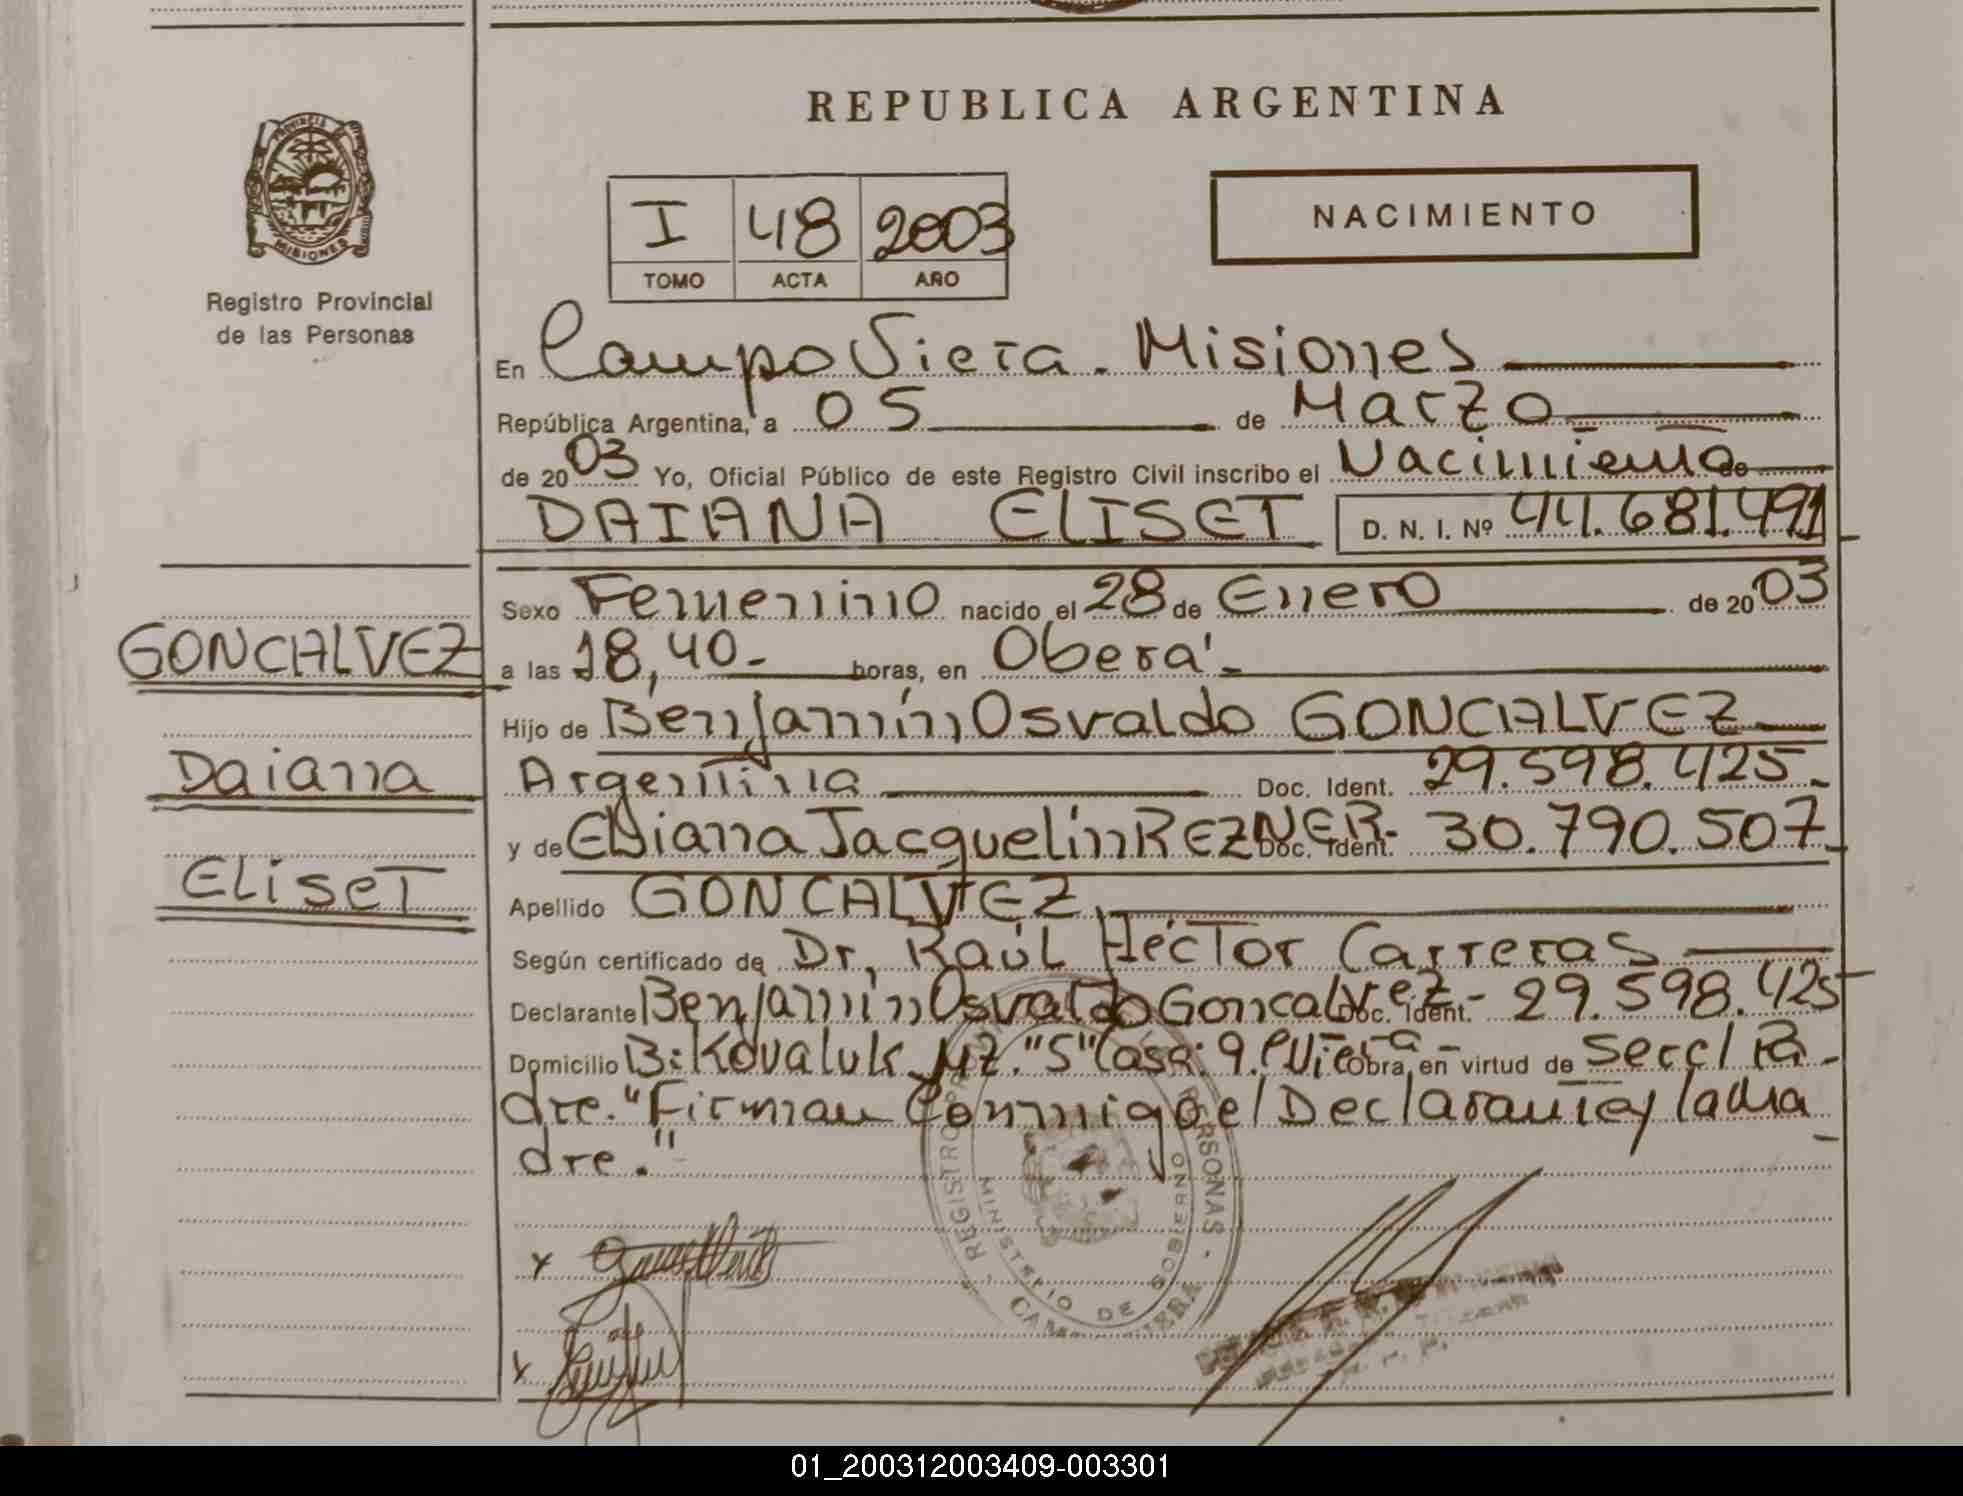 REPUBLICA ARGENTINA
PROVINCIA DE
MISIONES
Registro Provincial
de las Personas
I 48 2003
TOMO ACTA AÑO
NACIMIENTO
En Campo Viera. Misiones
República Argentina, a 05 de Marzo
de 2003 Yo, Oficial Público de este Registro Civil inscribo el Nacimiento de
DAIANA ELISET D. N. I. Nº 44.681.491
Sexo Femenino nacido el 28 de Enero de 2003
GONCALVEZ
a las 18,40- horas, en Oberá-
Hijo de Benjamín Osvaldo GONCALVEZ
Daiana
Argentina Doc. Ident. 29.598.425-
y de Eliana Jacquelín REZNER- Doc. Ident. 30.790.507-
Eliset
Apellido GONCALVEZ
Según certificado de Dr, Raúl Héctor Carreras
Declarante Benjamín Osvaldo Goncalvez- Doc. Ident. 29.598.425-
Domicilio B: Kovaluk Mz. "S" Casa: 9. C Viera- Obra en virtud de ser el Pa-
dre. "Firman Conmigo el Declarante y la Ma-
dre."
REGISTRO PERSONAS
MINISTERIO DE GOBIERNO
01_200312003409-003301